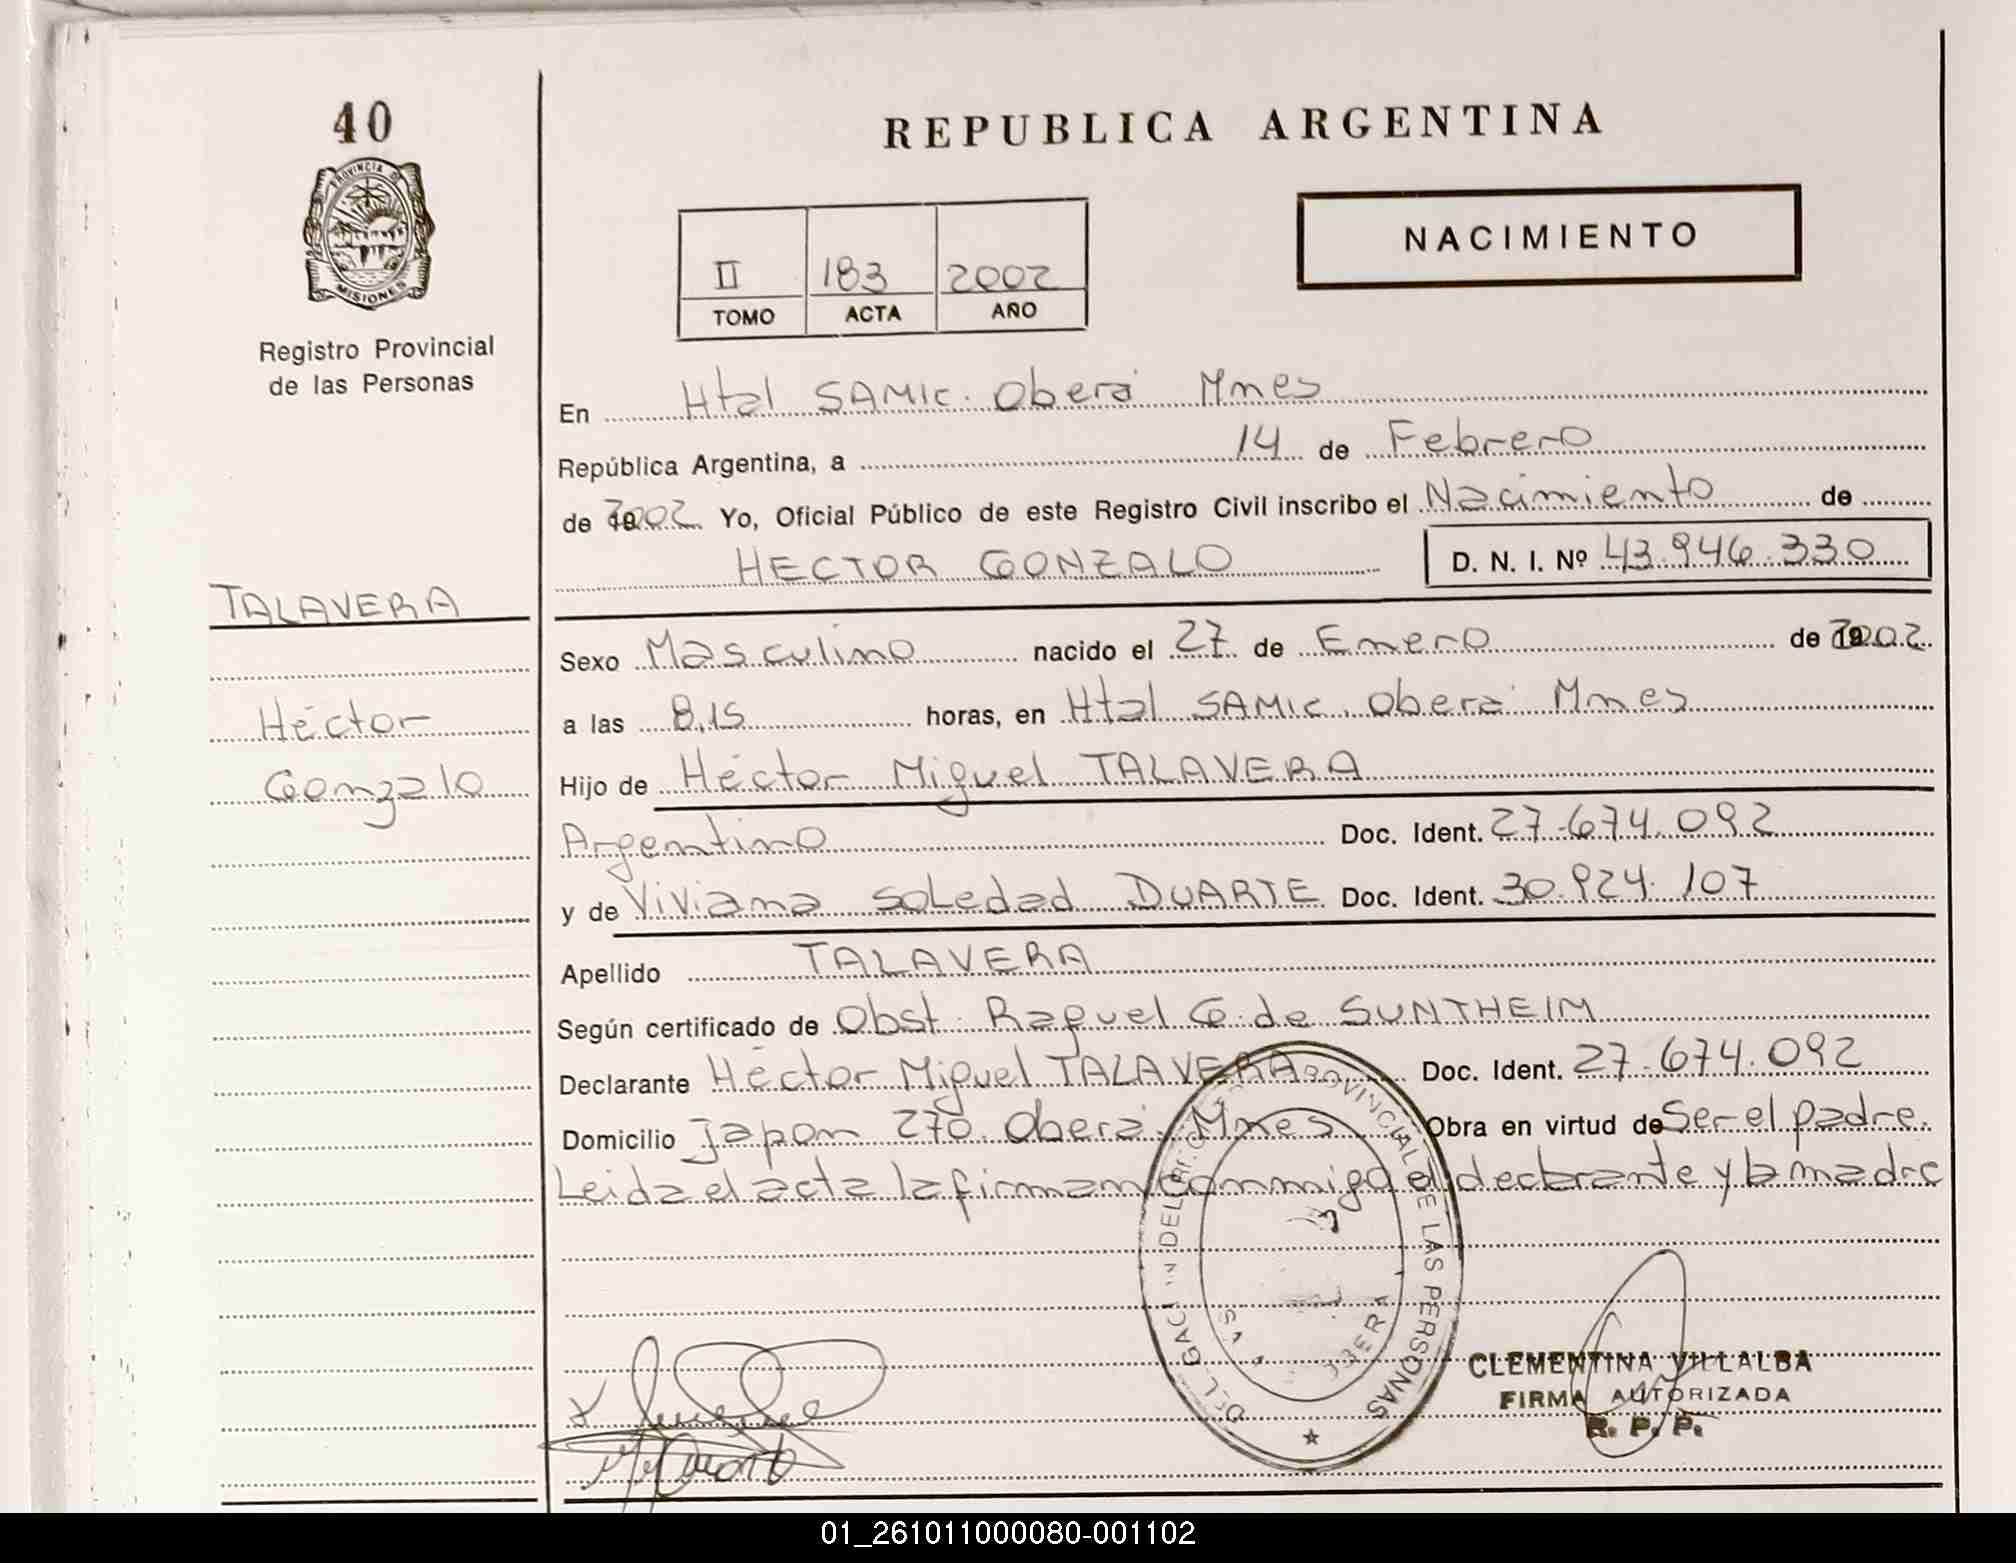 40
REPUBLICA ARGENTINA
PROVINCIA DE
MISIONES
Registro Provincial
de las Personas
NACIMIENTO
II 183 2002
TOMO ACTA AÑO
En Htal SAMIC. Oberá Mnes
República Argentina, a 14 de Febrero
de 2002 Yo, Oficial Público de este Registro Civil inscribo el Nacimiento de
HECTOR GONZALO D. N. I. Nº 43.946.330
TALAVERA
Héctor
Gonzalo
Sexo Masculino nacido el 27 de Enero de 2002.
a las 8,15 horas, en Htal SAMIC. Oberá Mnes
Hijo de Héctor Miguel TALAVERA
Argentino Doc. Ident. 27.674.092
y de Viviana Soledad DUARTE Doc. Ident. 30.924.107
Apellido TALAVERA
Según certificado de Obst. Raquel G. de SUNTHEIM
Declarante Héctor Miguel TALAVERA Doc. Ident. 27.674.092
Domicilio Japon 270. Oberá. Mnes Obra en virtud de Ser el padre.
Leida el acta la firman conmigo el declarante y la madre
PROVINCIAL DE LAS PERSONAS
CLEMENTINA VILLALBA
FIRMA AUTORIZADA
R. P. P.
01_261011000080-001102